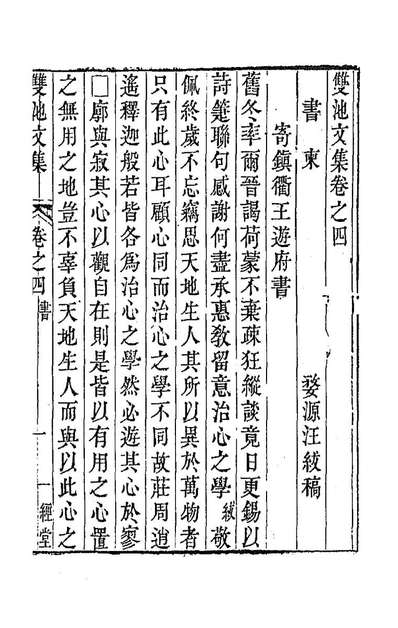 雙池文集卷之四
書柬　婺源汪紱稿
寄鎮衢王遊府書
舊冬率爾晉謁荷蒙不棄疎狂縱談竟日更錫以
詩筵聯句感謝何盡承惠敎留意治心之學紱敬
佩終歲不忘竊思天地生人其所以異於萬物者
只有此心耳顧心同而治心之學不同故莊周逍
遙釋迦般若皆各為治心之學然必遊其心於寥
□廓與寂其心以觀自在則是皆以有用之心置
之無用之地豈不辜負天地生人而與以此心之
雙池文集　卷之四　書　一　一經堂